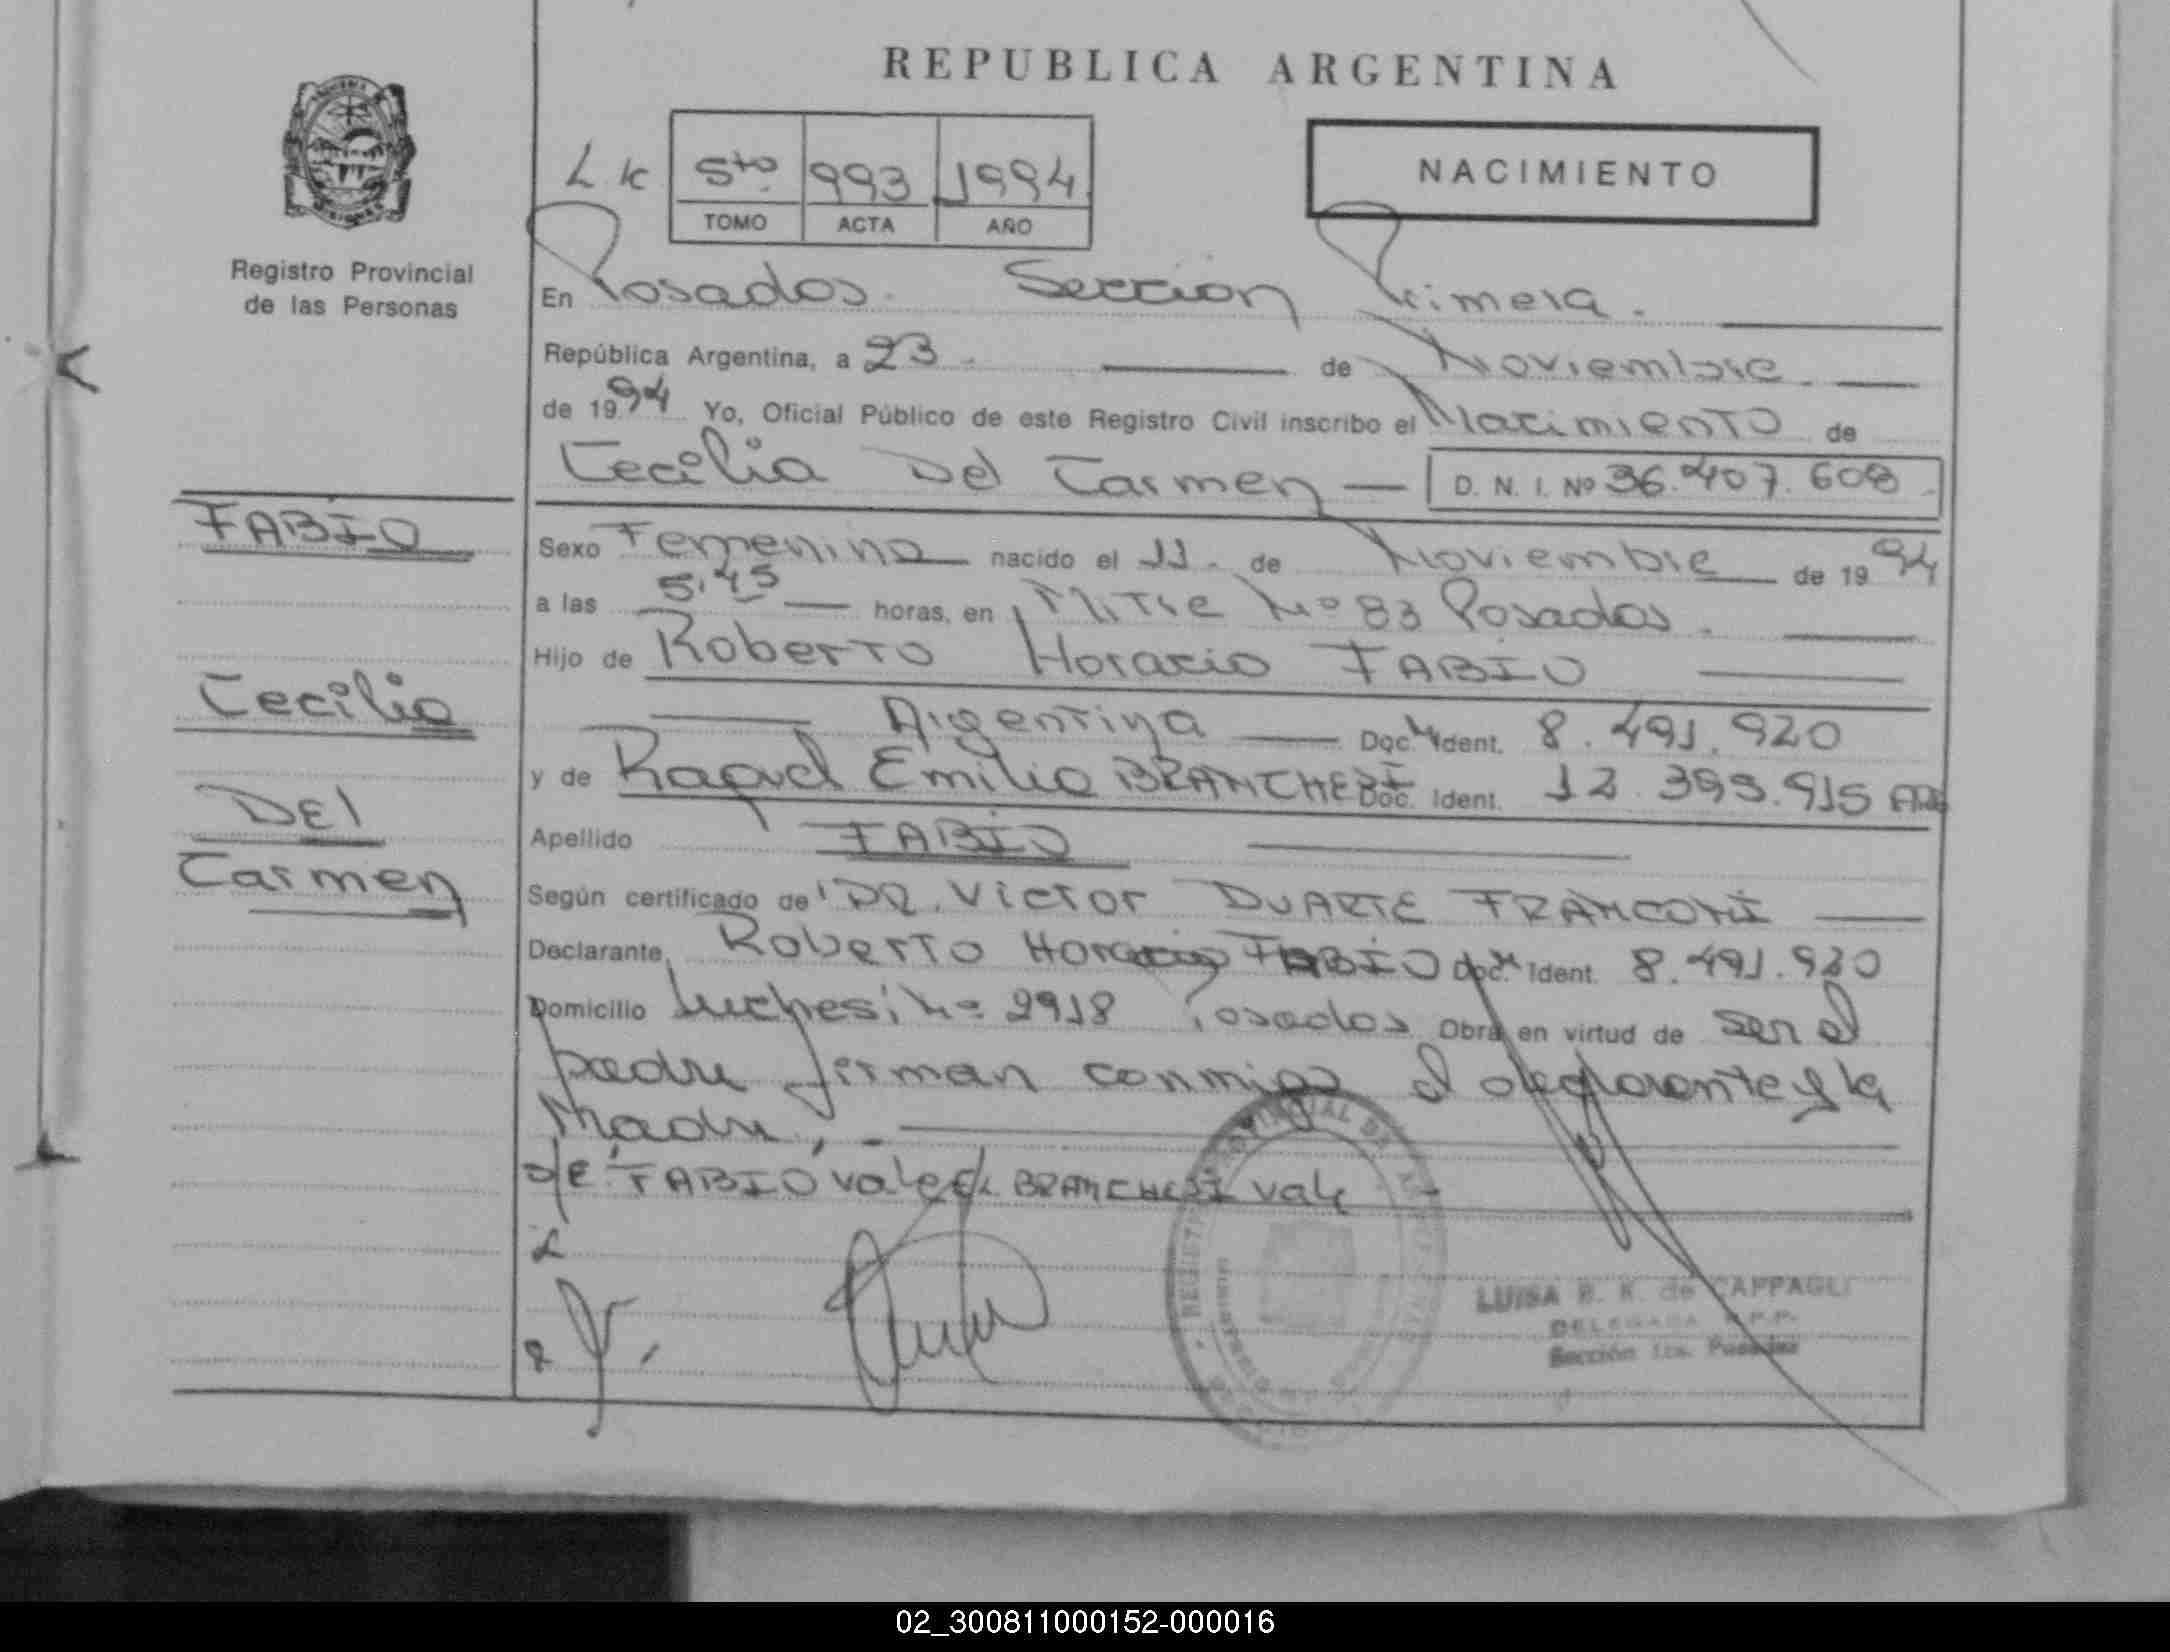 REPUBLICA ARGENTINA
5to 993 1994
TOMO ACTA AÑO
NACIMIENTO
Registro Provincial
de las Personas
En Posadas. Sección Primera.
República Argentina, a 23. de Noviembre.
de 1994 Yo, Oficial Público de este Registro Civil inscribo el Nacimiento de
Cecilia Del Carmen D. N. I. Nº 36.407.608
FABIO
Cecilia
Del
Carmen
Sexo Femenino nacido el 11. de Noviembre de 1994
a las 5.45 horas, en Mitre Nº 83 Posadas.
Hijo de Roberto Horacio FABIO
Argentina Doc. Ident. 8.491.920
y de Raquel Emilia BRANCHESI Doc. Ident. 12.393.915
Apellido FABIO
Según certificado de DR. Victor DUARTE FRANCONI
Declarante, Roberto Horacio FABIO Doc. Ident. 8.491.920
Domicilio Luchesi Nº 2918 Posadas Obra en virtud de ser el
padre firman conmigo el declarante y la
Madre,
s/E: FABIO vale BRANCHESI vale
LUISA B. K. de CAPPAGLI
DELEGADA R.P.P.
Sección 1ra. Posadas
02_300811000152-000016